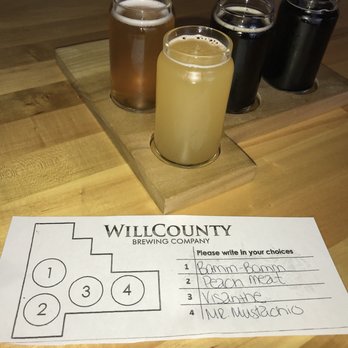 WILLCOUNTY
BREWING COMPANY
Please write in your choices
1 Bamm-Bamm
2 Peach meat
3 Xisanthe
4 Mr. Mustachio
1
2
3
4